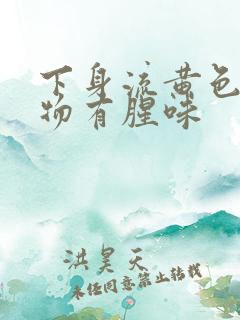 下身流黄色
物有腥味
洪昊天
未经同意禁止转载